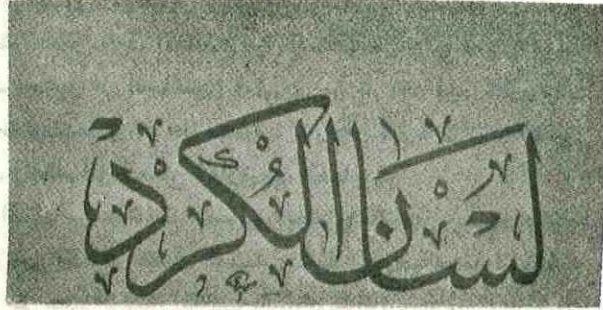 لسان الكُرد